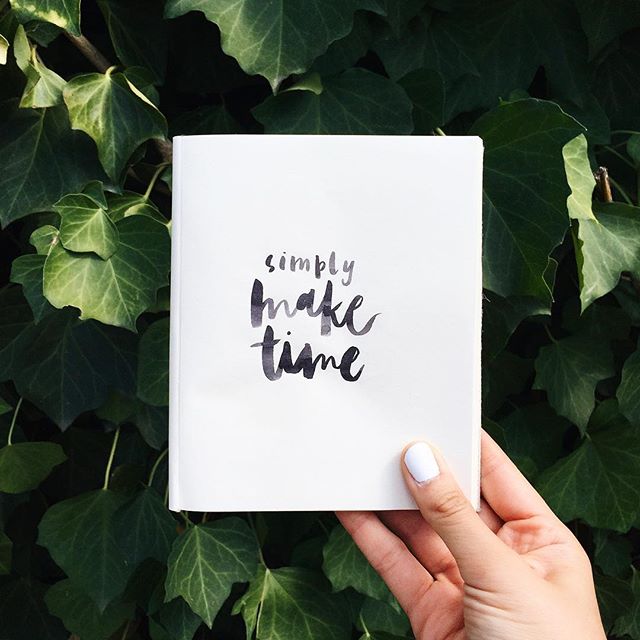 simply
make
time